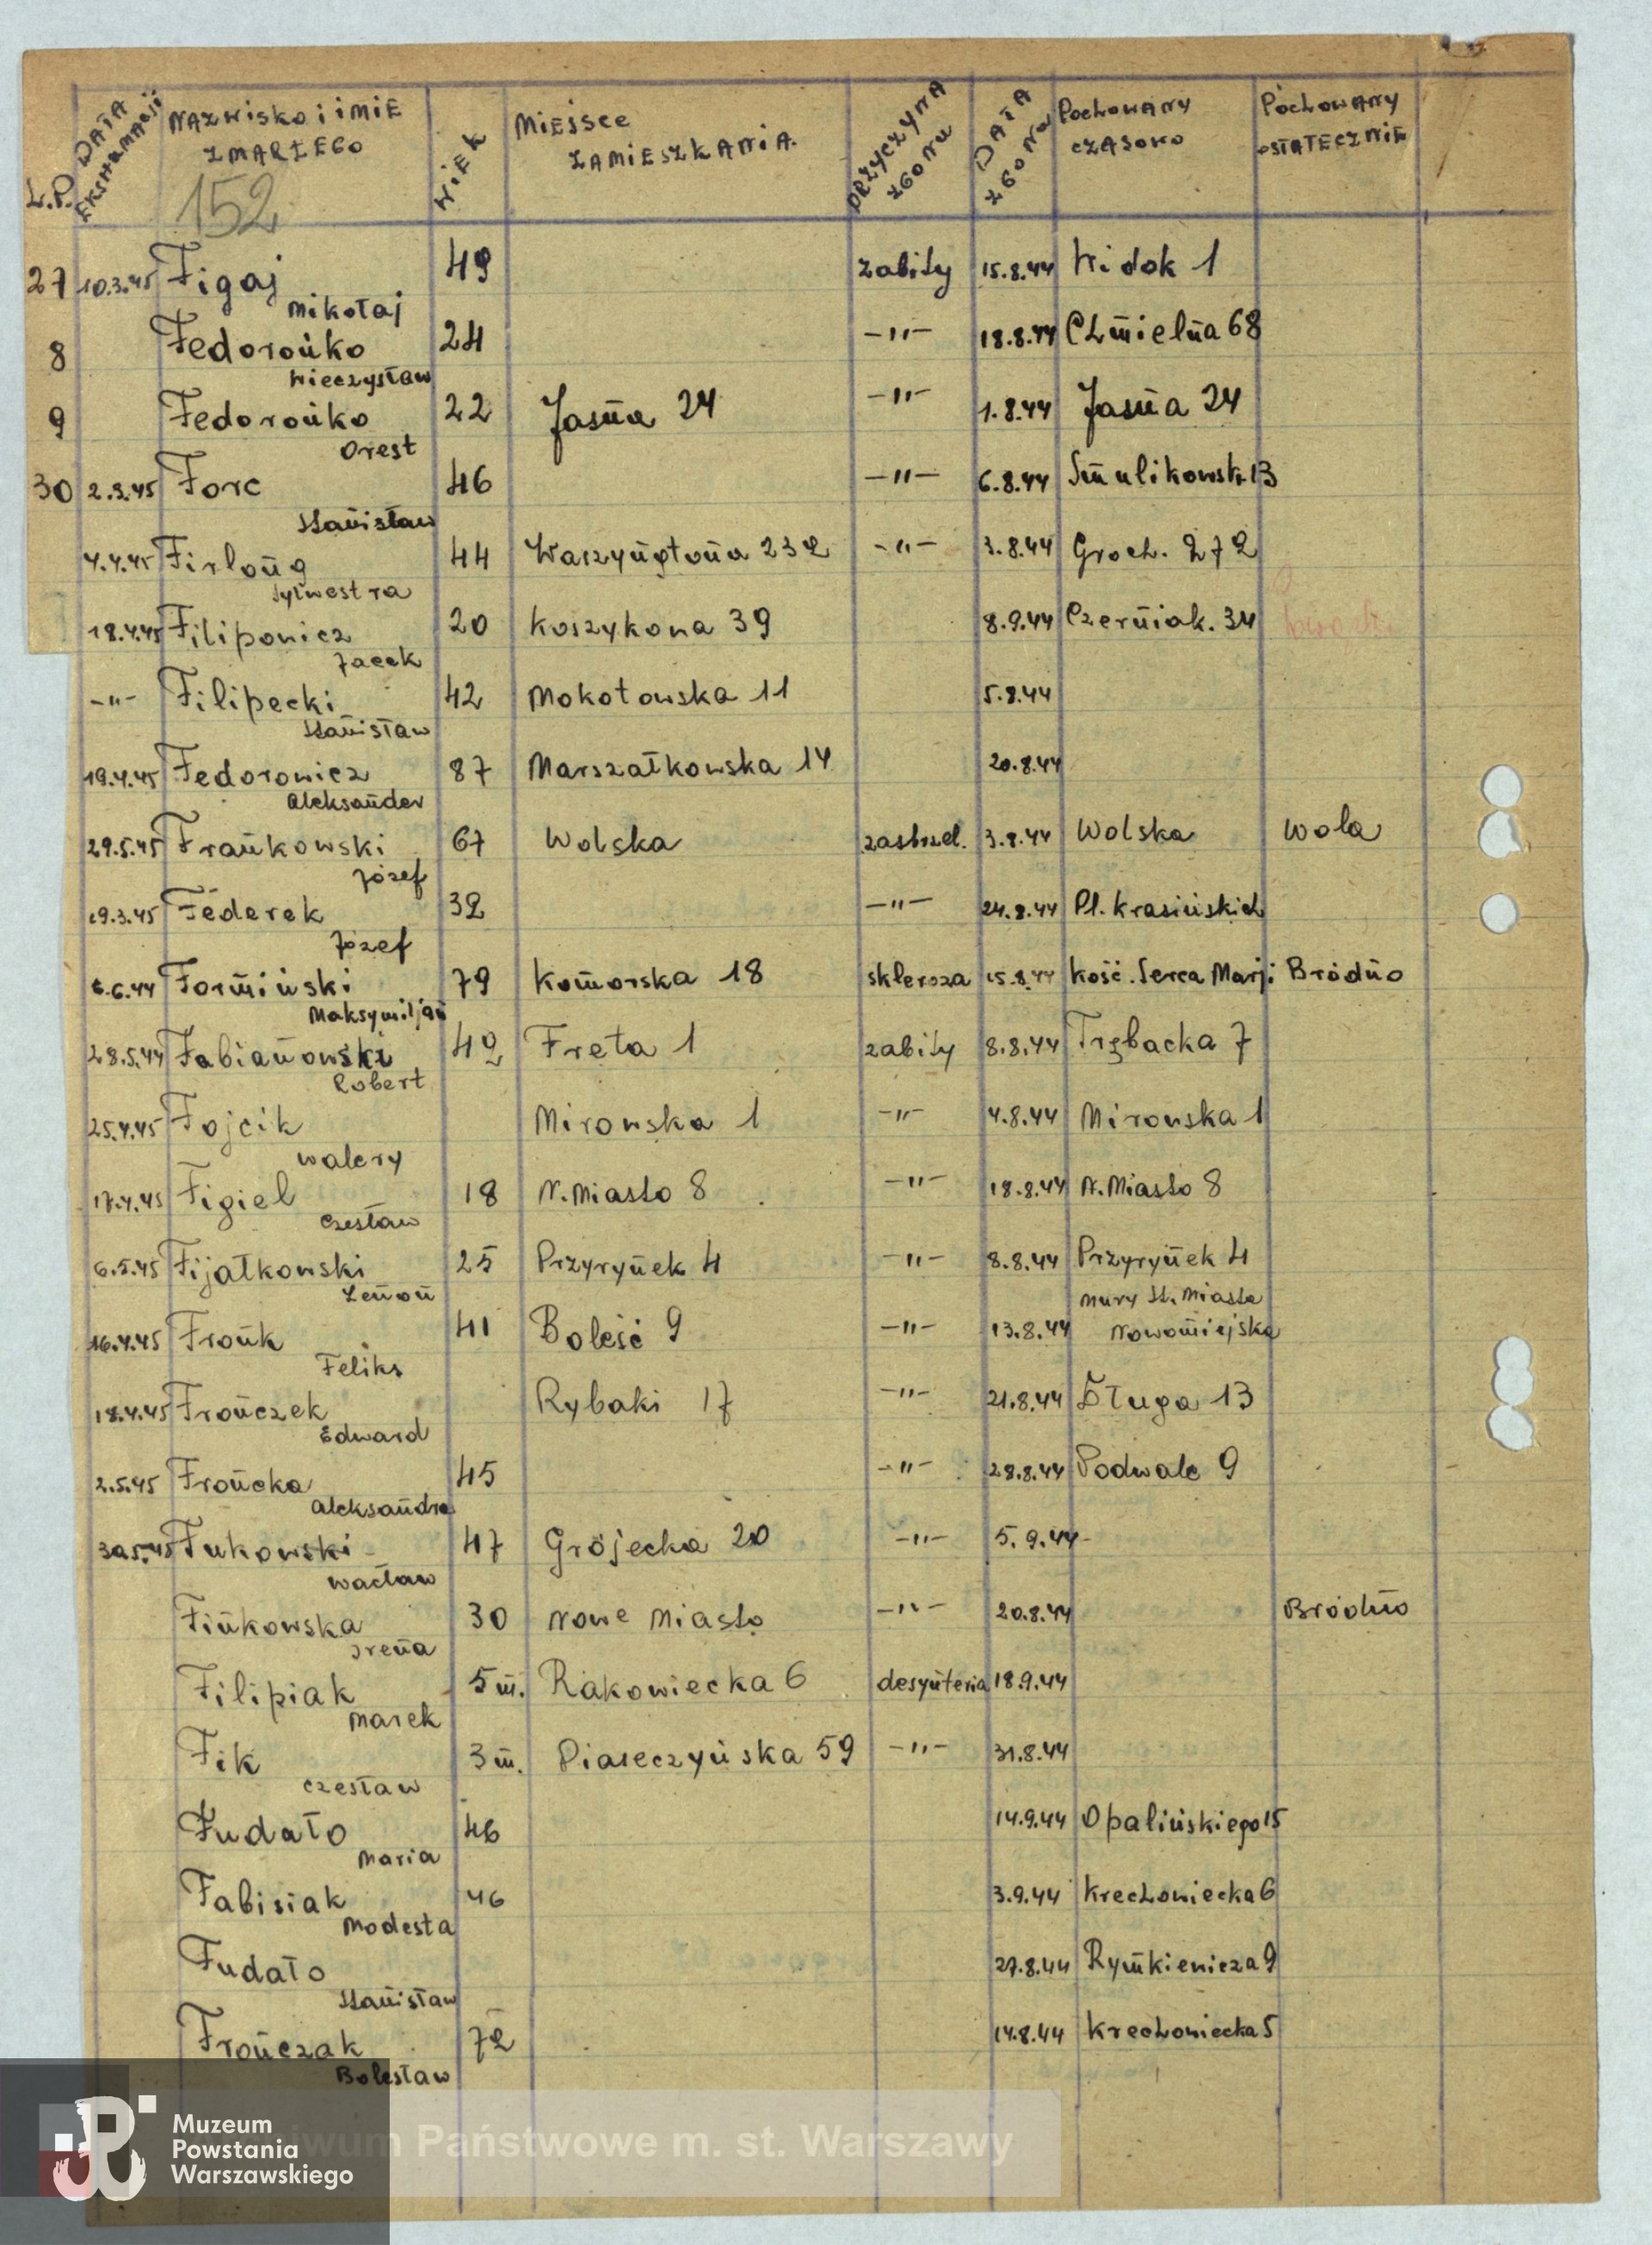 L.P. DATA EKSHUMACJI NAZWISKO i IMIE ZMARŁEGO WIEK MIEJSCE ZAMIESZKANIA. PRZYCZYNA ZGONU DATA ZGONU POCHOWANY CZASOWO POCHOWANY OSTATECZNIE
152
27 10.3.45 Figaj 49 zabity 15.8.44 Widok 1
Mikołaj
8 Fedorońko 24 -"- 18.8.44 Chmielna 68
Mieczysław
9 Fedorońko 22 Jasna 24 -"- 1.8.44 Jasna 24
Orest
30 2.3.45 Forc 46 -"- 6.8.44 Smulikowsk. 13
Stanisław
4.4.45 Firlong 44 Waszyngtona 232 -"- 3.8.44 Groch. 272
Sylwestra
18.4.45 Filipowicz 20 Koszykowa 39 8.9.44 Czerniak. 34
Jacek
-"- Filipecki 42 Mokotowska 11 5.8.44
Stanisław
19.4.45 Fedorowicz 87 Marszałkowska 14 20.8.44
Aleksander
29.5.45 Frankowski 67 Wolska zastrzel. 3.8.44 Wolska Wola
Józef
19.3.45 Federek 32 -"- 24.8.44 Pl. Krasińskich
Józef
6.6.44 Formiński 79 Komorska 18 skleroza 15.8.44 Kość. Serca Marji Bródno
Maksymiljan
28.5.44 Fabianowski 42 Freta 1 zabity 8.8.44 Trębacka 7
Robert
25.4.45 Fojcik Mirowska 1 -"- 4.8.44 Mirowska 1
Walery
17.4.45 Figiel 18 N. Miasto 8 -"- 18.8.44 N. Miasto 8
Czesław
6.5.45 Fijałkowski 25 Przyrynek 4 -"- 8.8.44 Przyrynek 4
Zenon
mury St. Miasta
16.4.45 Fronk 41 Boleść 9 -"- 13.8.44 Nowomiejska
Feliks
18.4.45 Frończek Rybaki 17 -"- 21.8.44 Długa 13
Edward
2.5.45 Froncka 45 -"- 28.8.44 Podwale 9
Aleksandra
30.5.45 Fukowski 47 Grójecka 20 -"- 5.9.44
Wacław
Finkowska 30 Nowe Miasto -"- 20.8.44 Bródno
Irena
Filipiak 5 m. Rakowiecka 6 desynteria 18.9.44
Marek
Fik 3 m. Piaseczyńska 59 -"- 31.8.44
Czesław
Fudało 46 14.9.44 Opalińskiego 15
Maria
Fabisiak 46 3.9.44 Krechowiecka 6
Modesta
Fudało 27.8.44 Rymkiewicza 9
Stanisław
Frończak 72 14.8.44 Krechowiecka 5
Bolesław
Muzeum
Powstania
Warszawskiego
iwum Państwowe m. st. Warszawy